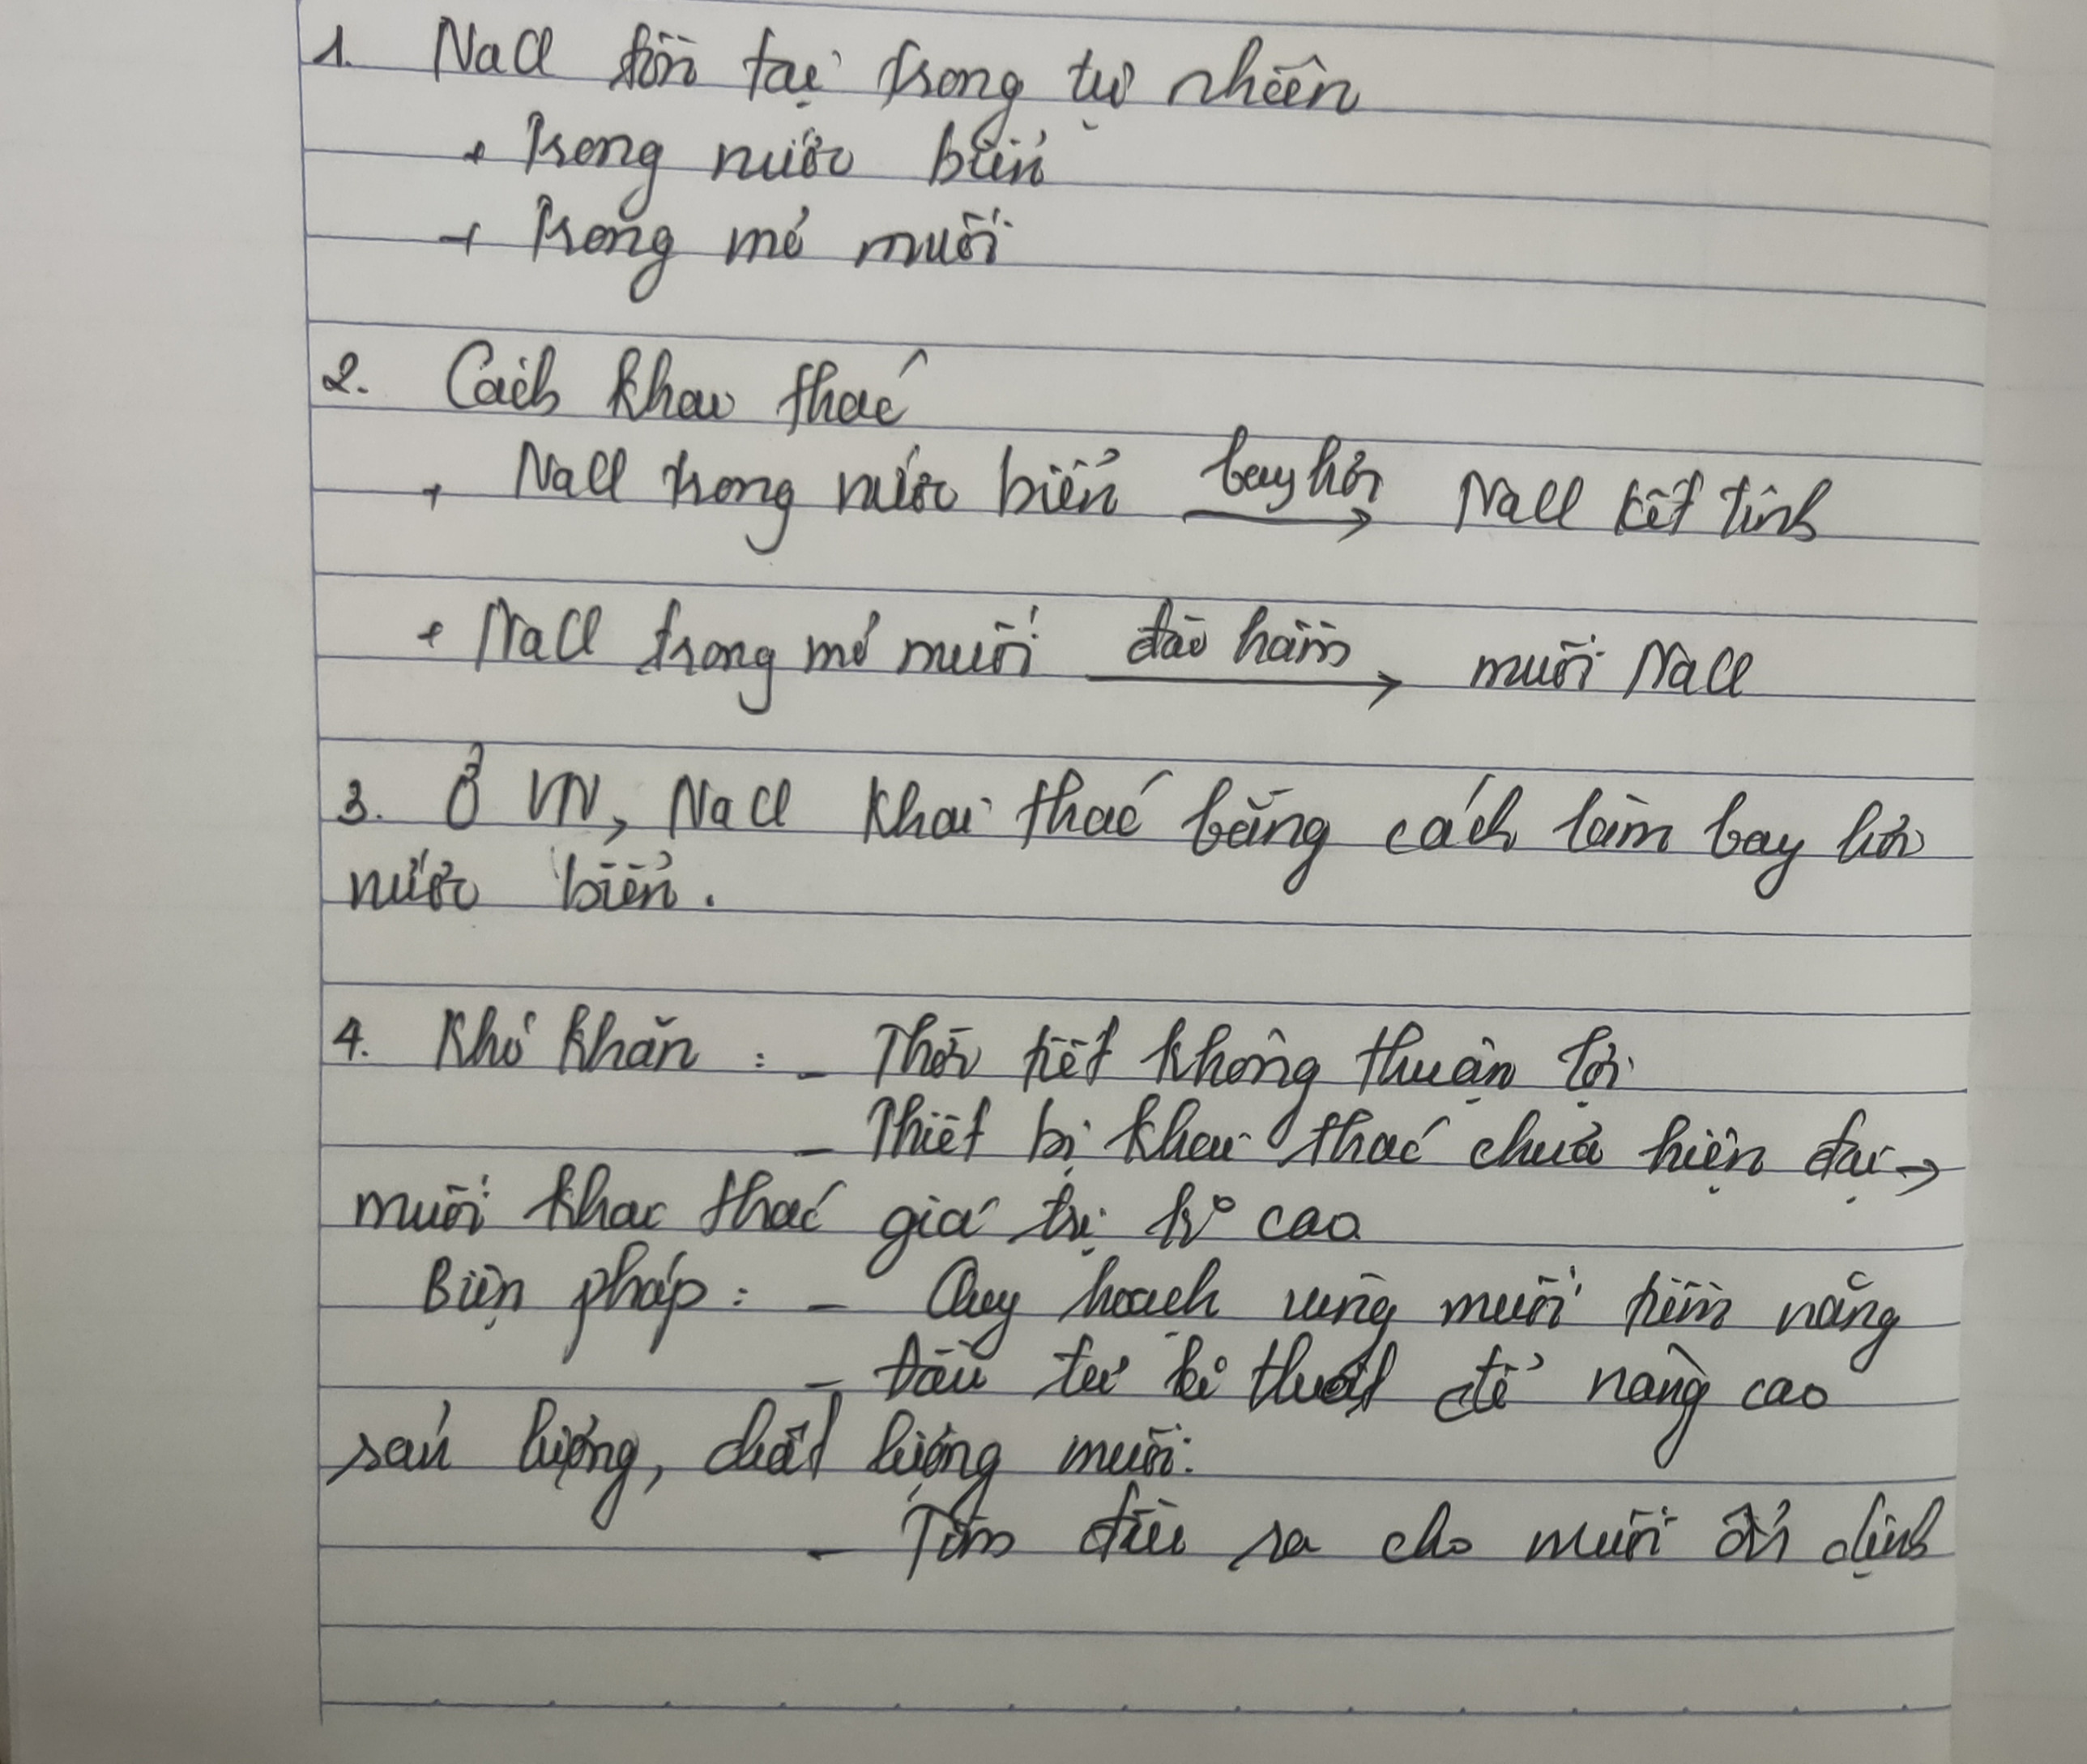 1. NaCl tồn tại trong tự nhiên
+ Trong nước biển
+ Trong mỏ muối
2. Cách khai thác
+ NaCl trong nước biển bay hơi → NaCl kết tinh
+ NaCl trong mỏ muối đào hầm → muối NaCl
3. Ở VN, NaCl khai thác bằng cách làm bay hơi
nước biển.
4. Khó khăn : - Thời tiết không thuận lợi
- Thiết bị khai thác chưa hiện đại →
muối khai thác giá trị k° cao
Biện pháp : - Quy hoạch vùng muối tiềm năng
- Đầu tư kĩ thuật để nâng cao
sản lượng, chất lượng muối.
- Tìm đầu ra cho muối ổn định